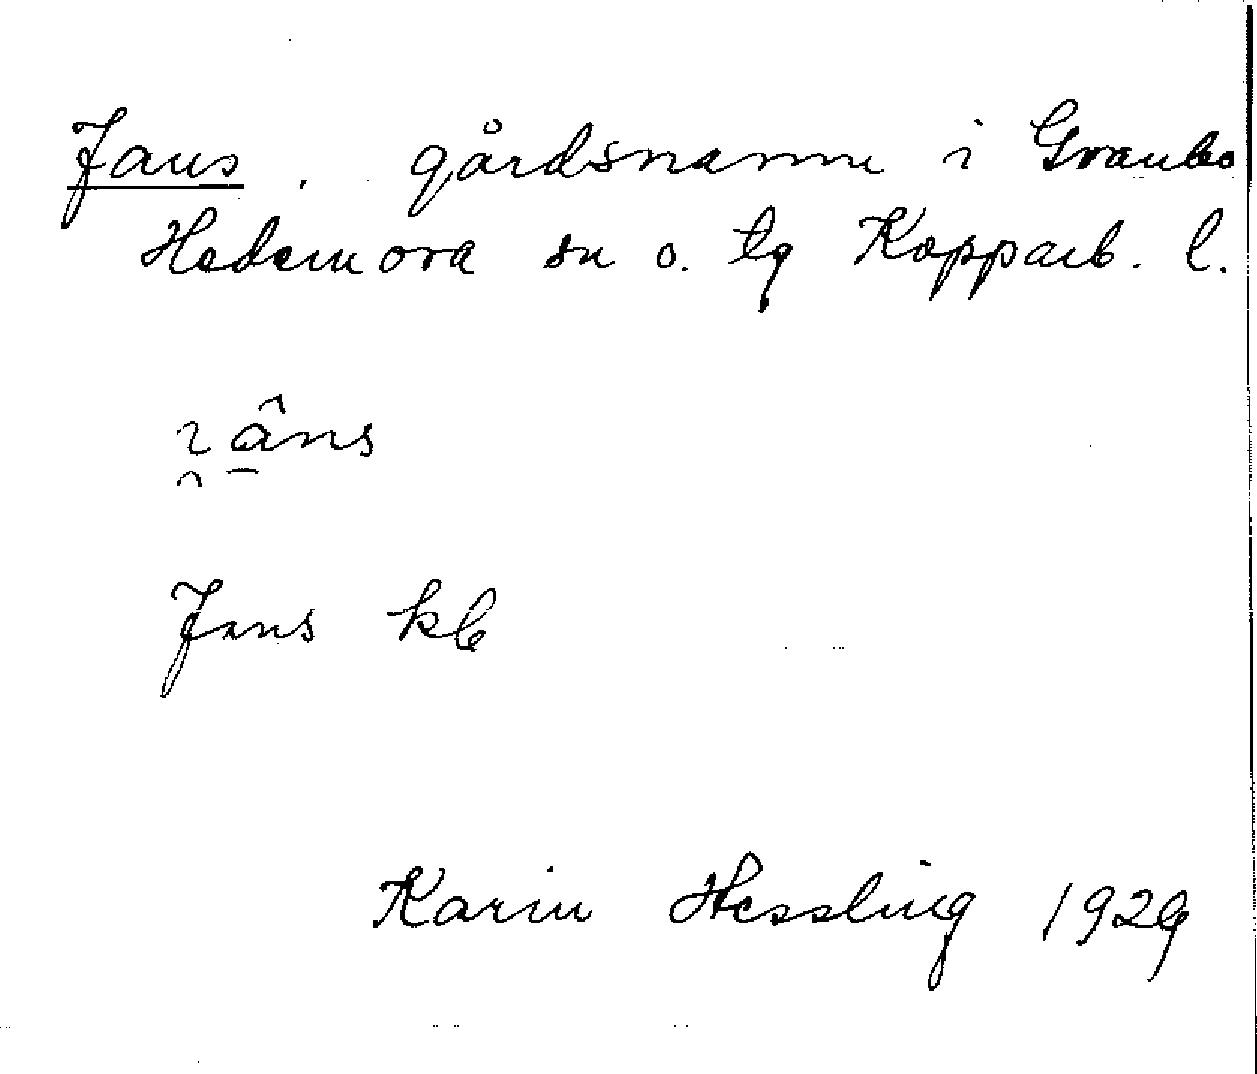 Jans . gårdsnamn i Granbo
Hedemora sn o. tg Kopparb. l.
ɿ̯ ȃ̱ns
Jans kb
Karin Hessling 1929